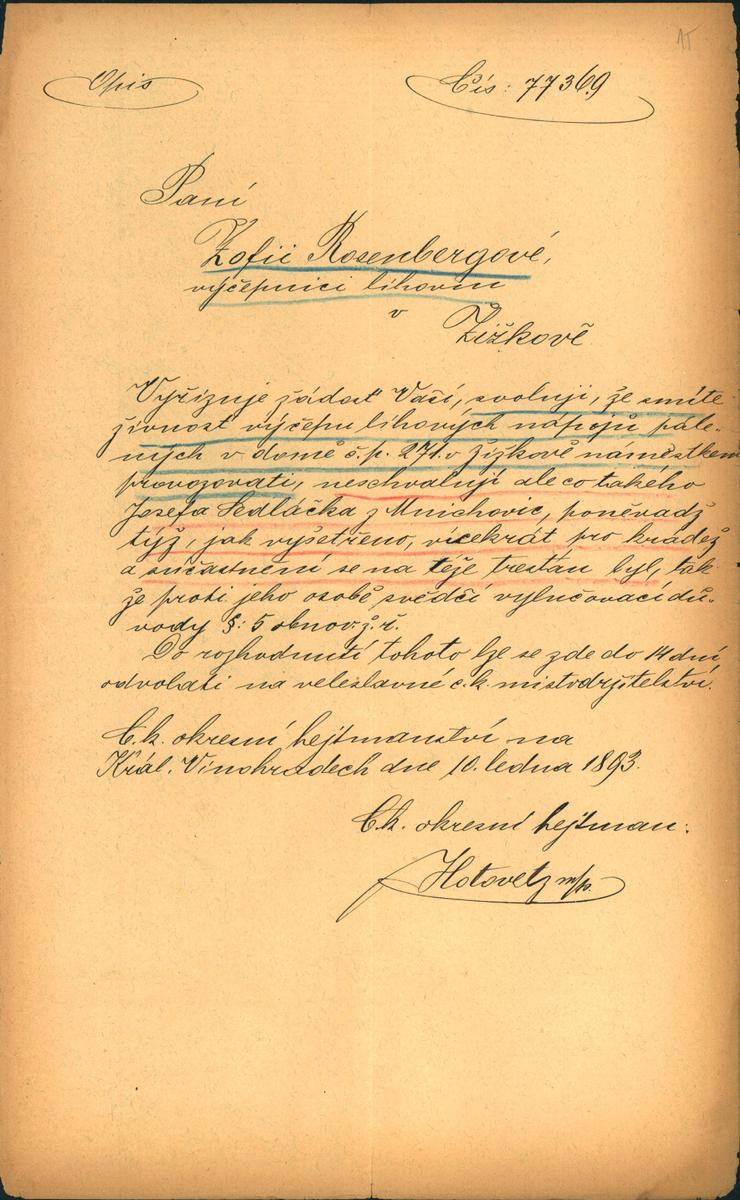 15
Opis
Čís: 77369
Paní
Žofii Rosenbergové,
výčepnici lihovin
v
Žižkově
Vyřizuje žádost Vaší, svoluji, že smíte
živnost výčepu lihových nápojů pále-
ných v domě č.p. 271. v Žižkově náměstkem
provozovati, neschvaluji ale co takého
Josefa Sedláčka z Mnichovic, poněvadž
týž, jak vyšetřeno, vícekrát pro krádež
a súčastnění se na téže trestán byl, tak
že proti jeho osobě svědčí vylučovací dů-
vody §: 5 obnov. ž. ř.
Do rozhodnutí tohoto lze se zde do 14 dní
odvolati na veleslavné c.k. místodržitelství.
C.k. okresní hejtmanství na
Král. Vinohradech dne 10. ledna 1893.
C.k. okresní hejtman:
Hotovetz m/p.